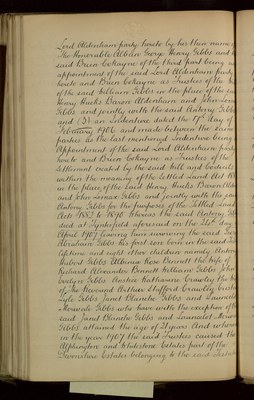 Lord Aldenham party hereto by his then name of
The Honorable Alban George Henry Gibbs and
said Brien Cokayne of the third part being an
appointment of the said Lord Aldenham party
hereto and Brien Cokayne as Trustees of the
of the said William Gibbs in the place of the said
Henry Hucks Baron Aldenham and John Lomax
Gibbs and jointly with the said Antony Gibbs
and (3) an Indenture dated the 17th day of
February 1906 and made between the same
parties as the last mentioned Indenture being
Appointment of the said Lord Aldenham party
hereto and Brien Cokayne as Trustees of the
settlement created by the said will and Codicils
within the meaning of the Settled Land Act 18
in the place of the said Henry Hucks Baron Aldenham
and John Lomax Gibbs and jointly with the said
Antony Gibbs for the purposes of the Settled Land
Acts 1882 to 1890 Whereas the said Antony Gibbs
died at Tyntesfield aforesaid on the day
April 1907 leaving him surviving the said George
Abraham Gibbs his first son born in the said
lifetime and eight other children namely
Hubert Gibbs Albinia Rose Bennett the wife of
Richard Alexander Bennett William Gibbs John
Evelyn Gibbs Anstice Katharine Crawley the wife
of The Reverend Arthur Stafford Crawley
Lyle Gibbs Janet Blanche Gibbs and Lancelot
Merivale Gibbs who have with the exception of the
said Janet Blanche Gibbs and Lancelot Merivale
Gibbs attained the age of 21 years And whereas
in the year 1907 the said Trustees caused the
Alphington and Ilsham Estates part of the
Devonshire Estates belonging to the said